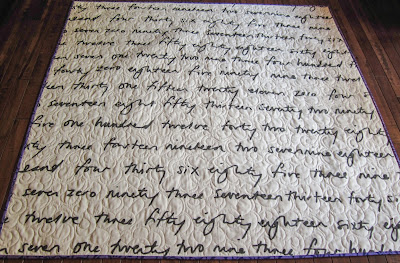 three fourteen nineteen two sevennine eighteen
and four thirty six eighty five three nine
seven zero ninety three seventeen thirteen forty
twelve three fifty eighty eighteen sixty eighty
seven one twenty two nine three four hundred
forty zero eighteen five ninety nine three two
thirty one fifteen twenty eleven zero four
seventeen eight fifty thirteen seventy two ninety
five one hundred twelve forty two twenty eight
three fourteen nineteen two sevennine eighteen
and four thirty six eighty five three nine
seven zero ninety three seventeen thirteen forty
twelve three fifty eighty eighteen sixty
seven one twenty two nine three four hundred